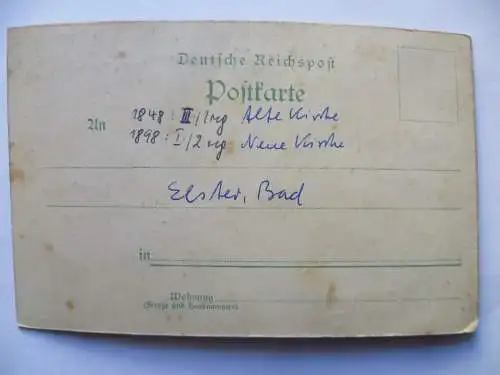 Deutsche Reichspost
Postkarte
An
1848: III/1rg Alte Kirche
1898: I/2rg Neue Kirche
Elster, Bad
in
Wohnung
(Straße und Hausnummer)